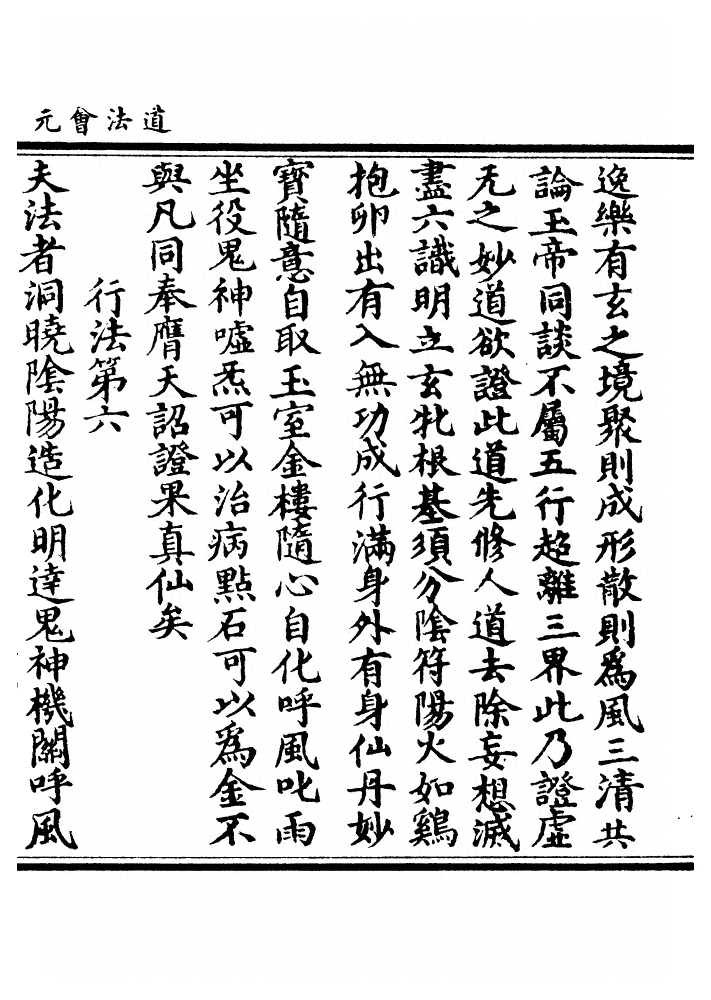 道法會元
逸樂有玄之境聚則成形散則爲風三清共
論玉帝同談不屬五行超離三界此乃證虛
无之妙道欲證此道先修人道去除妄想滅
盡六識明立玄牝根基須分陰符陽火如鷄
抱卵出有入無功成行滿身外有身仙丹妙
寶隨意自取玉室金樓隨心自化呼風叱雨
坐役鬼神噓炁可以治病點石可以爲金不
與凡同奉膺天詔證果真仙矣
行法第六
夫法者洞曉陰陽造化明達鬼神機關呼風